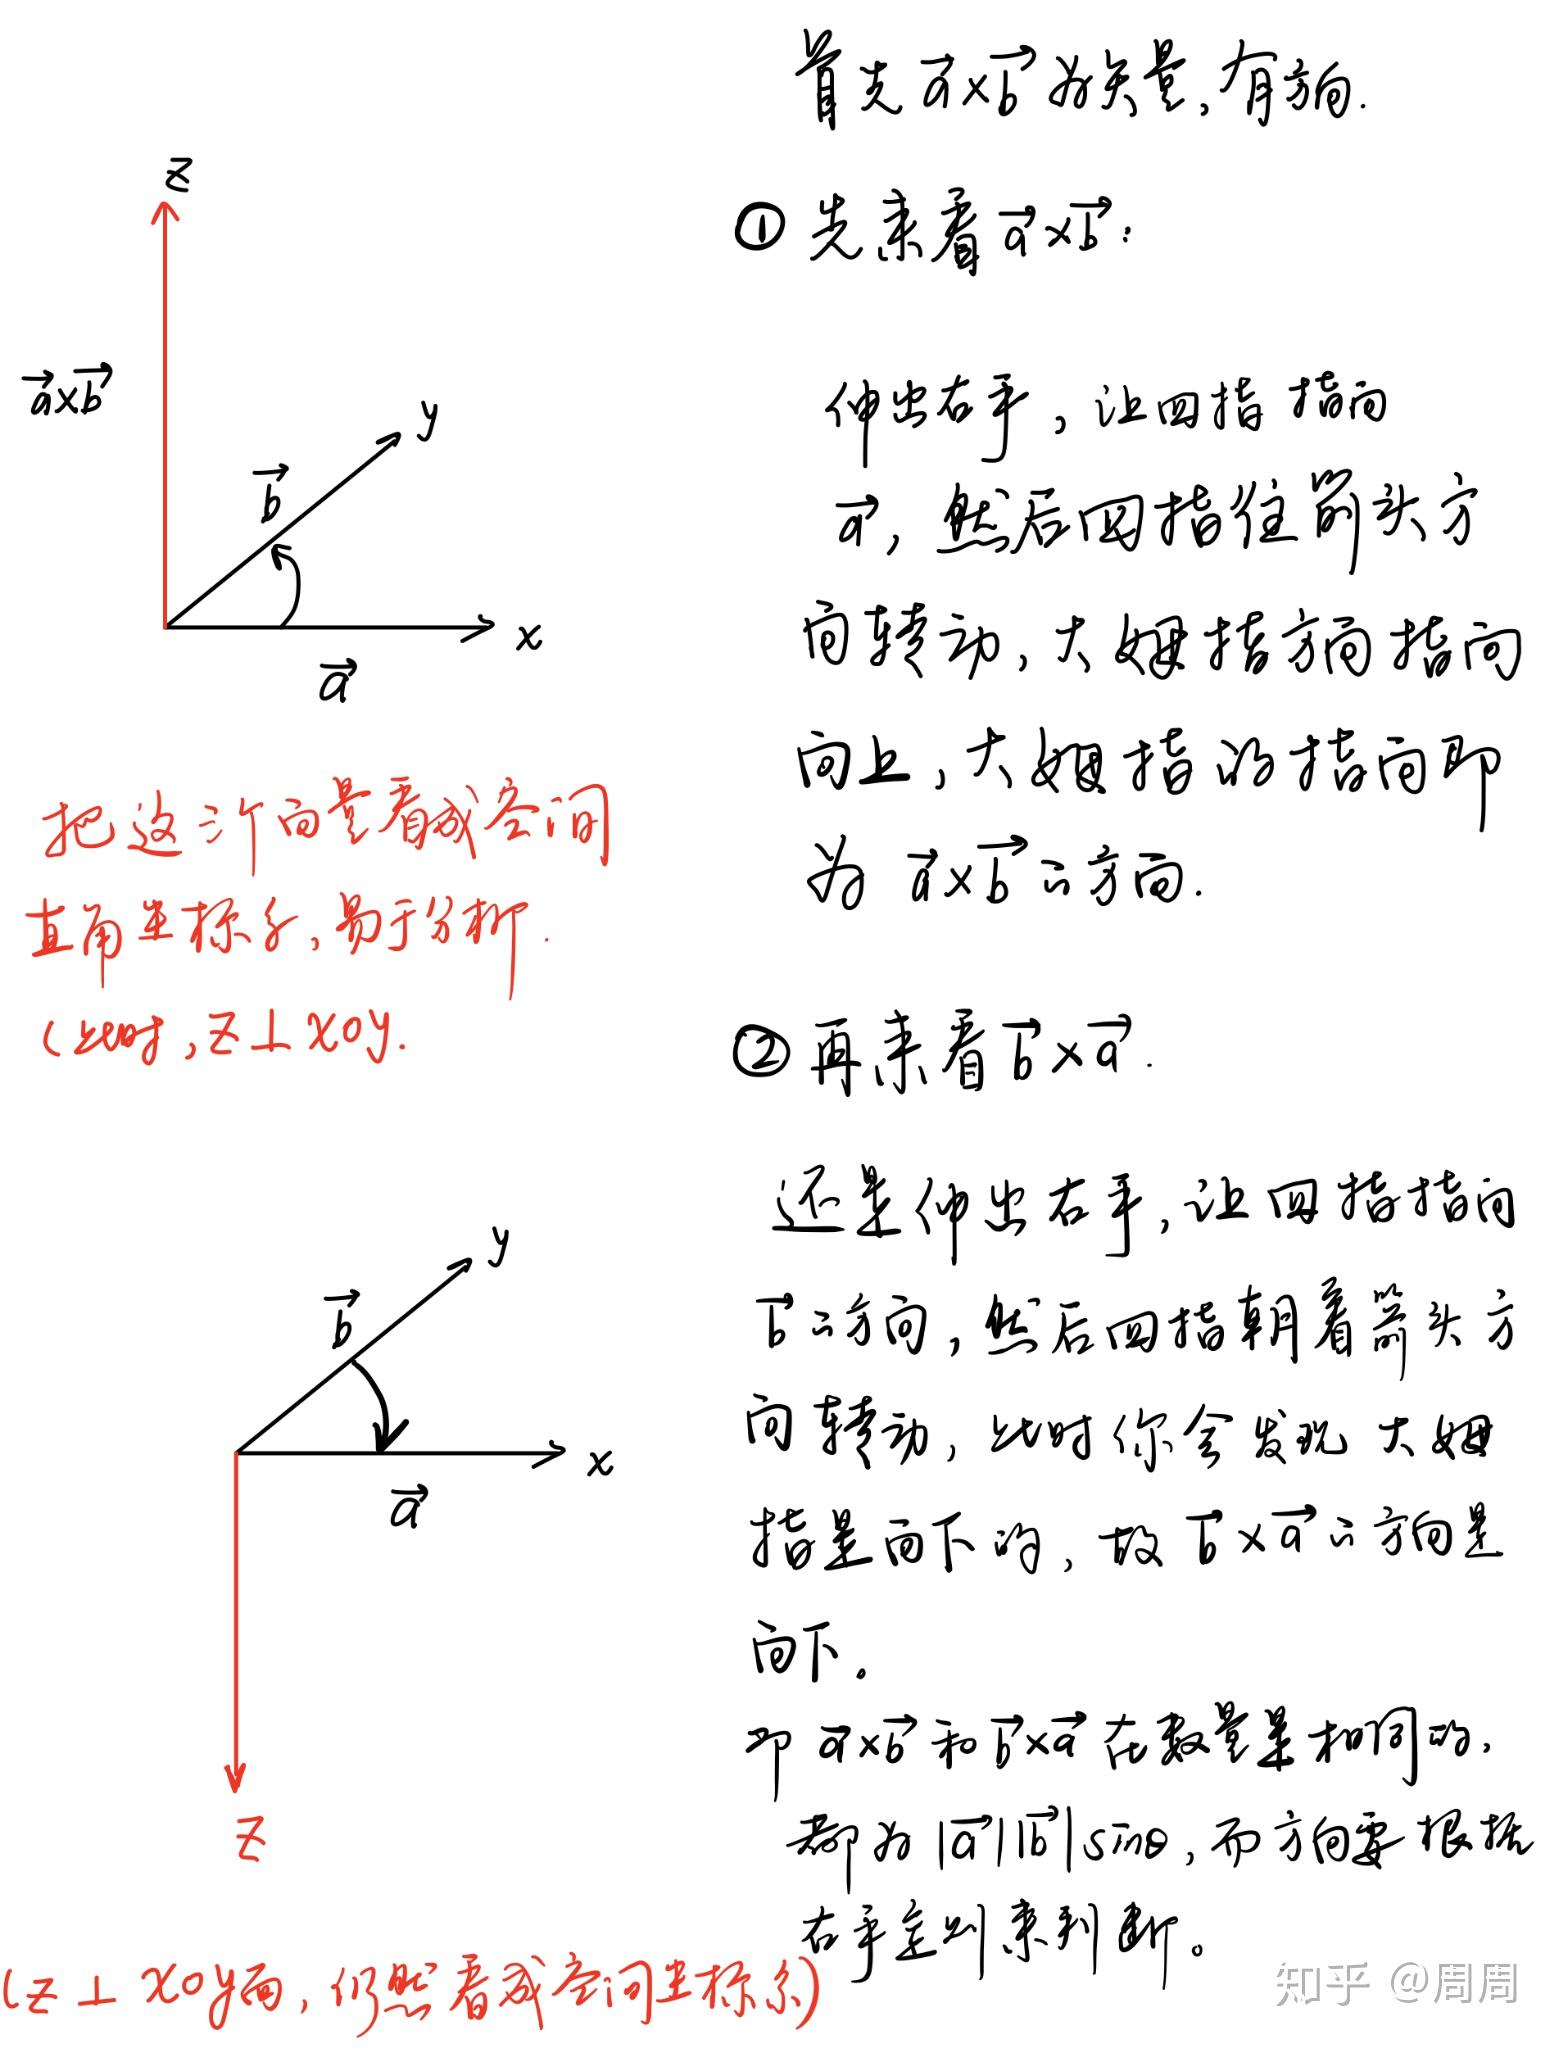 首先 a×b 为矢量,有方向.
① 先来看 a×b:
伸出右手,让四指 指向
a,然后四指往箭头方
向转动,大姆指方向指向
向上,大姆指的指向即
为 a×b 的方向.
z
a×b
y
b
x
a
把这三个向量看成空间
直角坐标系,易于分析.
(此时,z⊥xoy.
② 再来看 b×a.
还是伸出右手,让四指指向
b 的方向,然后四指朝着箭头方
向转动,此时你会发现 大姆
指是向下的,故 b×a 的方向是
向下。
即 a×b 和 b×a 在数量是相同的,
都为 |a||b|sinθ,而方向要根据
右手定则来判断。
y
b
x
a
z
(z⊥xoy面,仍然看成空间坐标系)
知乎 @周周